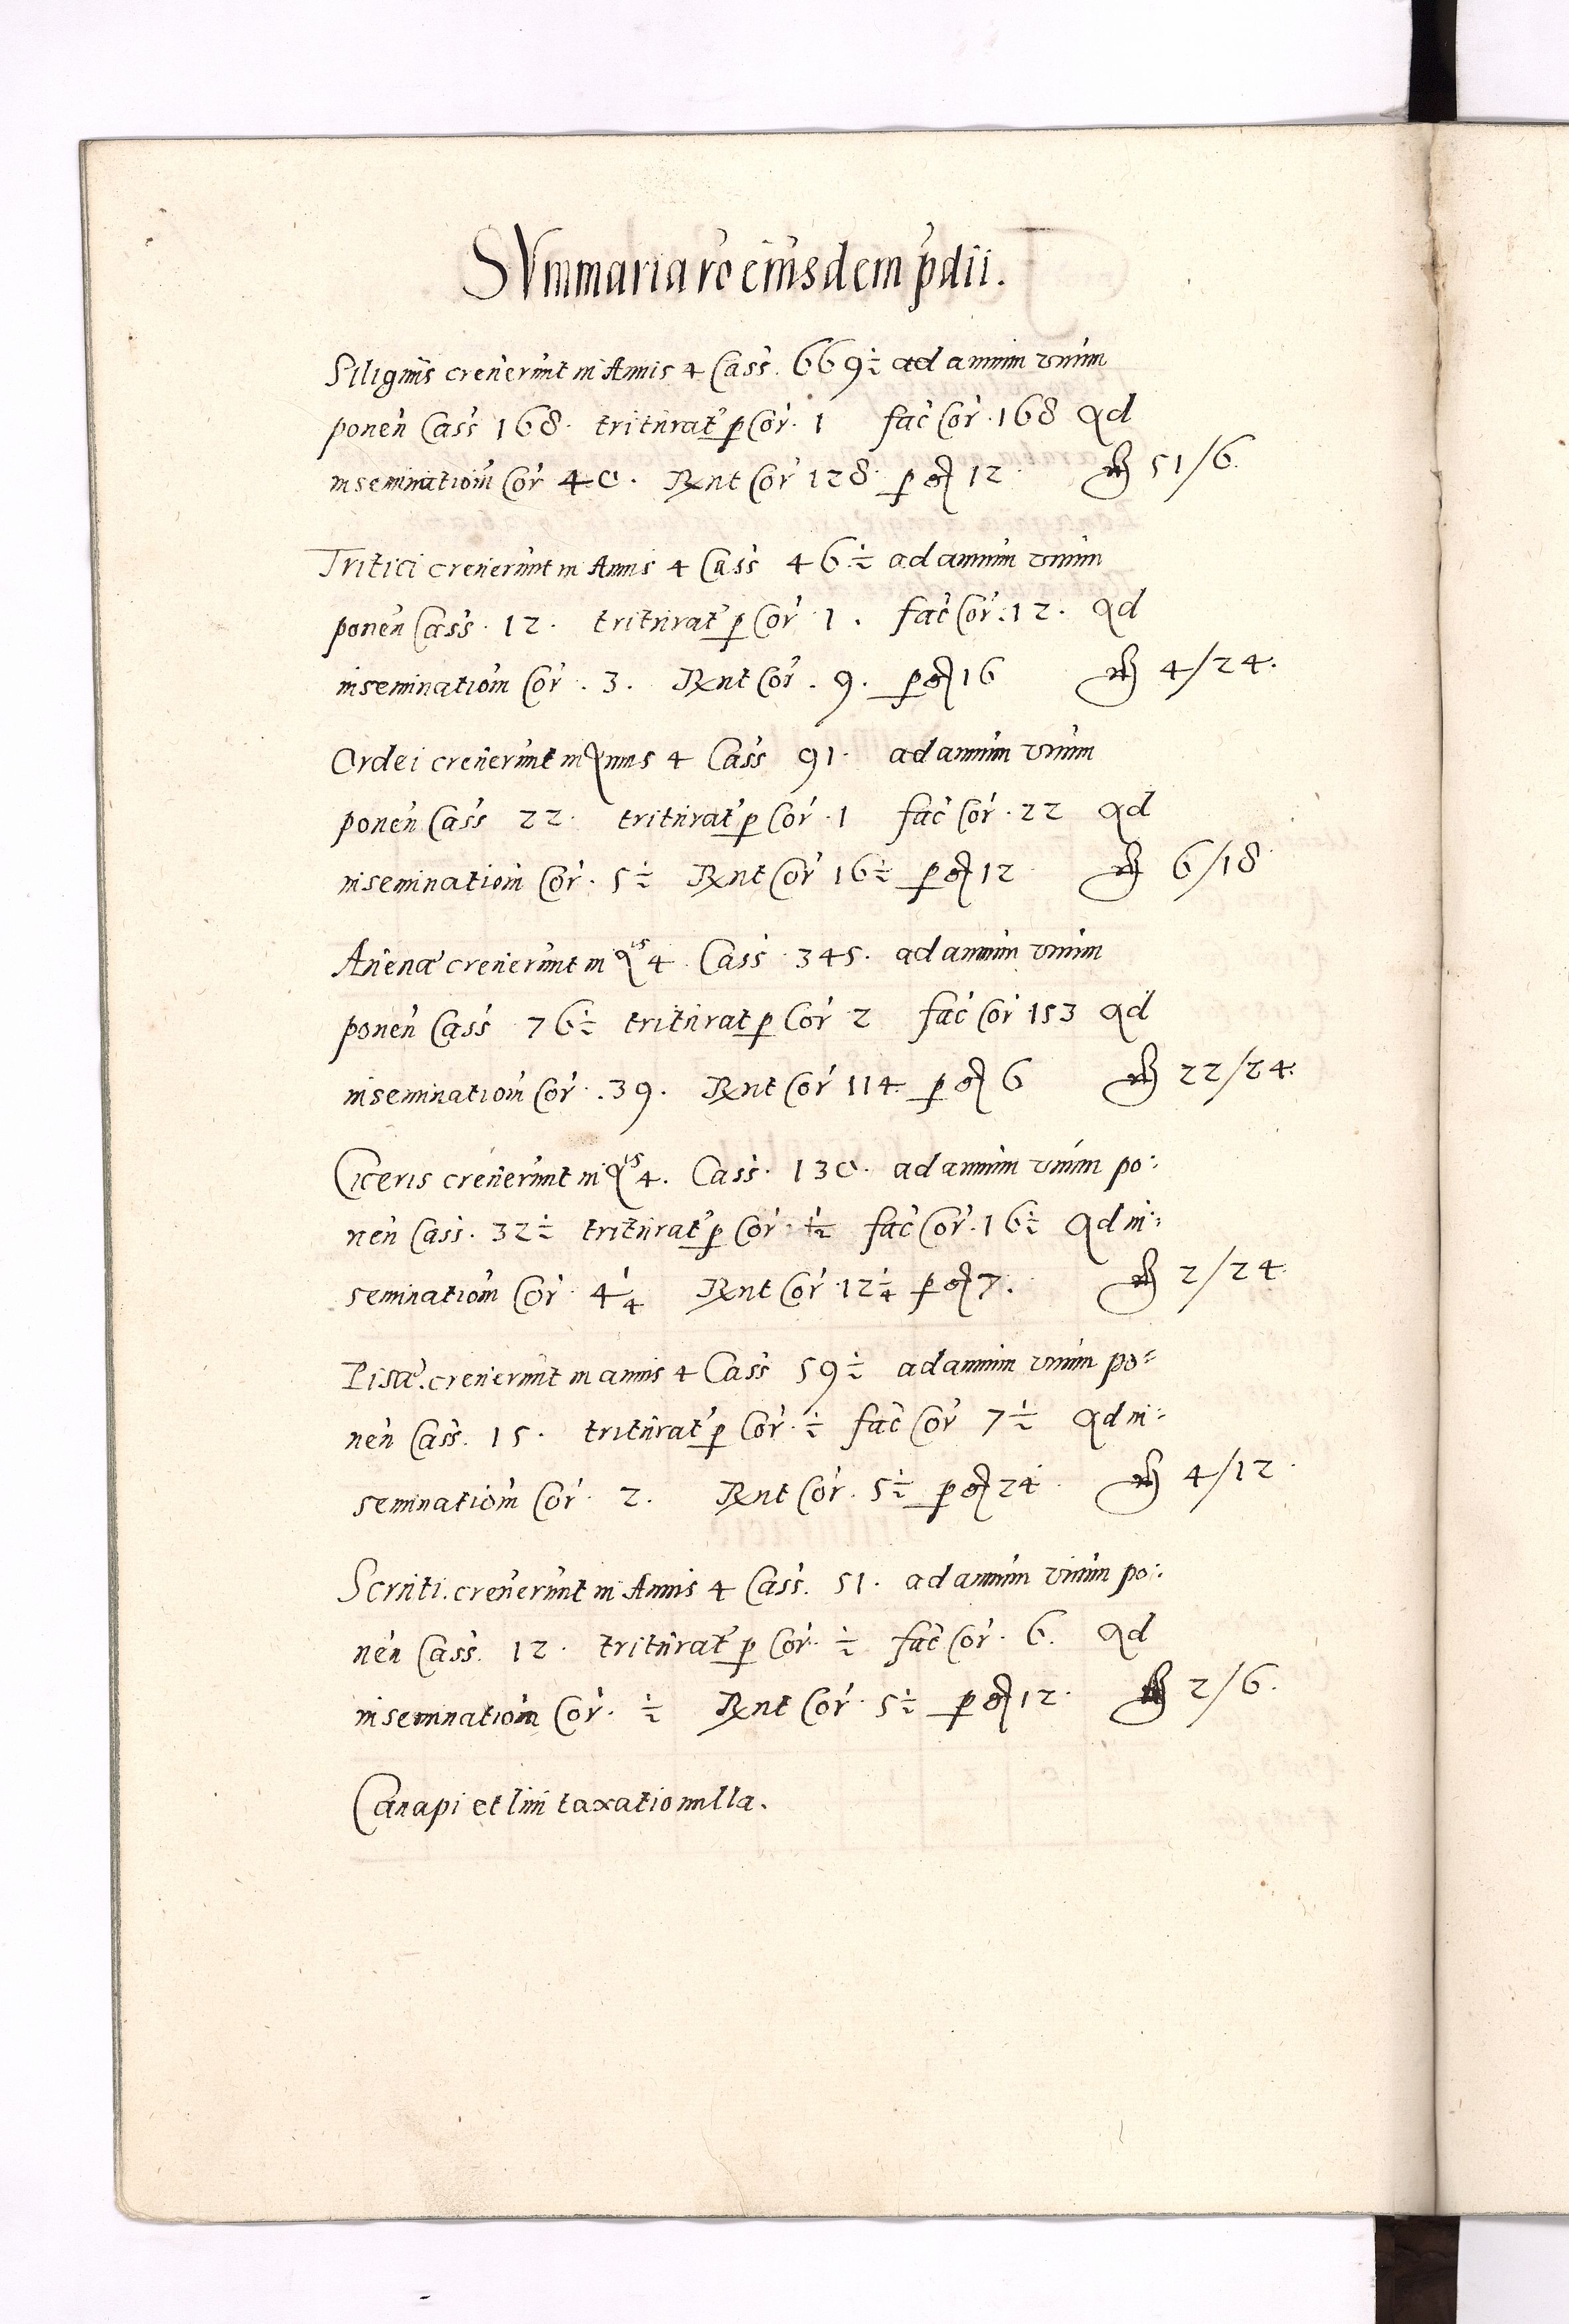 SVmmaria ro eiusdem pdii.
Siliginis creuerunt in Annis 4 Cass. 669½ ad annum vnum
ponen Cass 168. triturat p Cor. 1 fac Cor. 168 Ad
inseminatiom Cor 40. Rxnt Cor 128. p 12. 51/6.
Tritici creuerunt in Annis 4 Cass 46½ ad annum vnum
ponen Cass. 12. triturat p Cor 1. fac Cor. 12. Ad
inseminatiom Cor. 3. Rxnt Cor. 9. p 16 4/24.
Ordei creuerunt in Annis 4 Cass 91. ad annum vnum
ponen Cass 22. triturat p Cor. 1 fac Cor. 22 Ad
inseminatiom Cor. 5½ Rxnt Cor 16½ p 12 6/18
Auenæ creuerunt in Aⁱˢ 4. Cass. 345. ad annum vnum
ponen Cass 76½ triturat p Cor 2 fac Cor 153 Ad
inseminatiom Cor. 39. Rxnt Cor 114. p 6 22/24.
Ciceris creuerunt in Aⁱˢ 4. Cass. 130. ad annum vnum po:
nen Cass. 32½ triturat p Cor. ½ fac Cor. 16½ Ad in:
seminatiom Cor 4¼ Rxnt Cor 12¼ p 7. 2/24
Pisæ. creuerunt in annis 4 Cass 59½ ad annum vnum po:
nen Cass. 15. triturat p Cor. ½ fac Cor 7½ Ad in:
seminatiom Cor. 2. Rxnt Cor. 5½ p 24 4/12.
Scruti. creuerunt in Annis 4 Cass. 51. ad annum vnum po:
nen Cass. 12. triturat p Cor. ½ fac Cor. 6. Ad
inseminatiom Cor. ½ Rxnt Cor. 5½ p 12. 2/6.
Canapi et lini taxatio nulla.